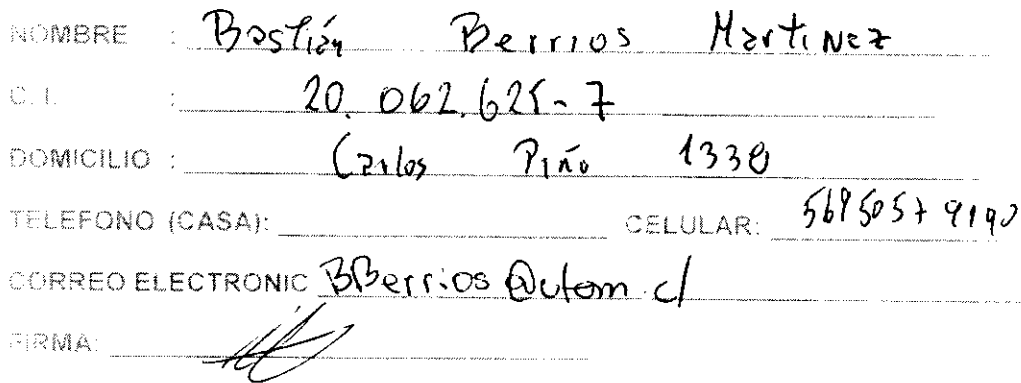 NOMBRE : Bastián Berrios Martinez
C. I. : 20.062.625-7
DOMICILIO : Carlos Piño 1330
TELEFONO (CASA): CELULAR:
CORREO ELECTRONIC BBerrios@utem.cl
FIRMA: